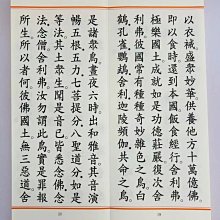 以衣裓盛眾妙華供養他方十萬億佛。
即以食時還到本國飯食經行。舍利弗。
極樂國土成就如是功德莊嚴。復次舍
利弗。彼國常有種種奇妙雜色之鳥。白
鶴孔雀鸚鵡舍利迦陵頻伽共命之鳥。
是諸眾鳥。晝夜六時。出和雅音。其音演
暢五根五力七菩提分八聖道分如是
等法。其土眾生聞是音已。皆悉念佛念
法念僧。舍利弗。汝勿謂此鳥。實是罪報
所生。所以者何。彼佛國土無三惡道。舍